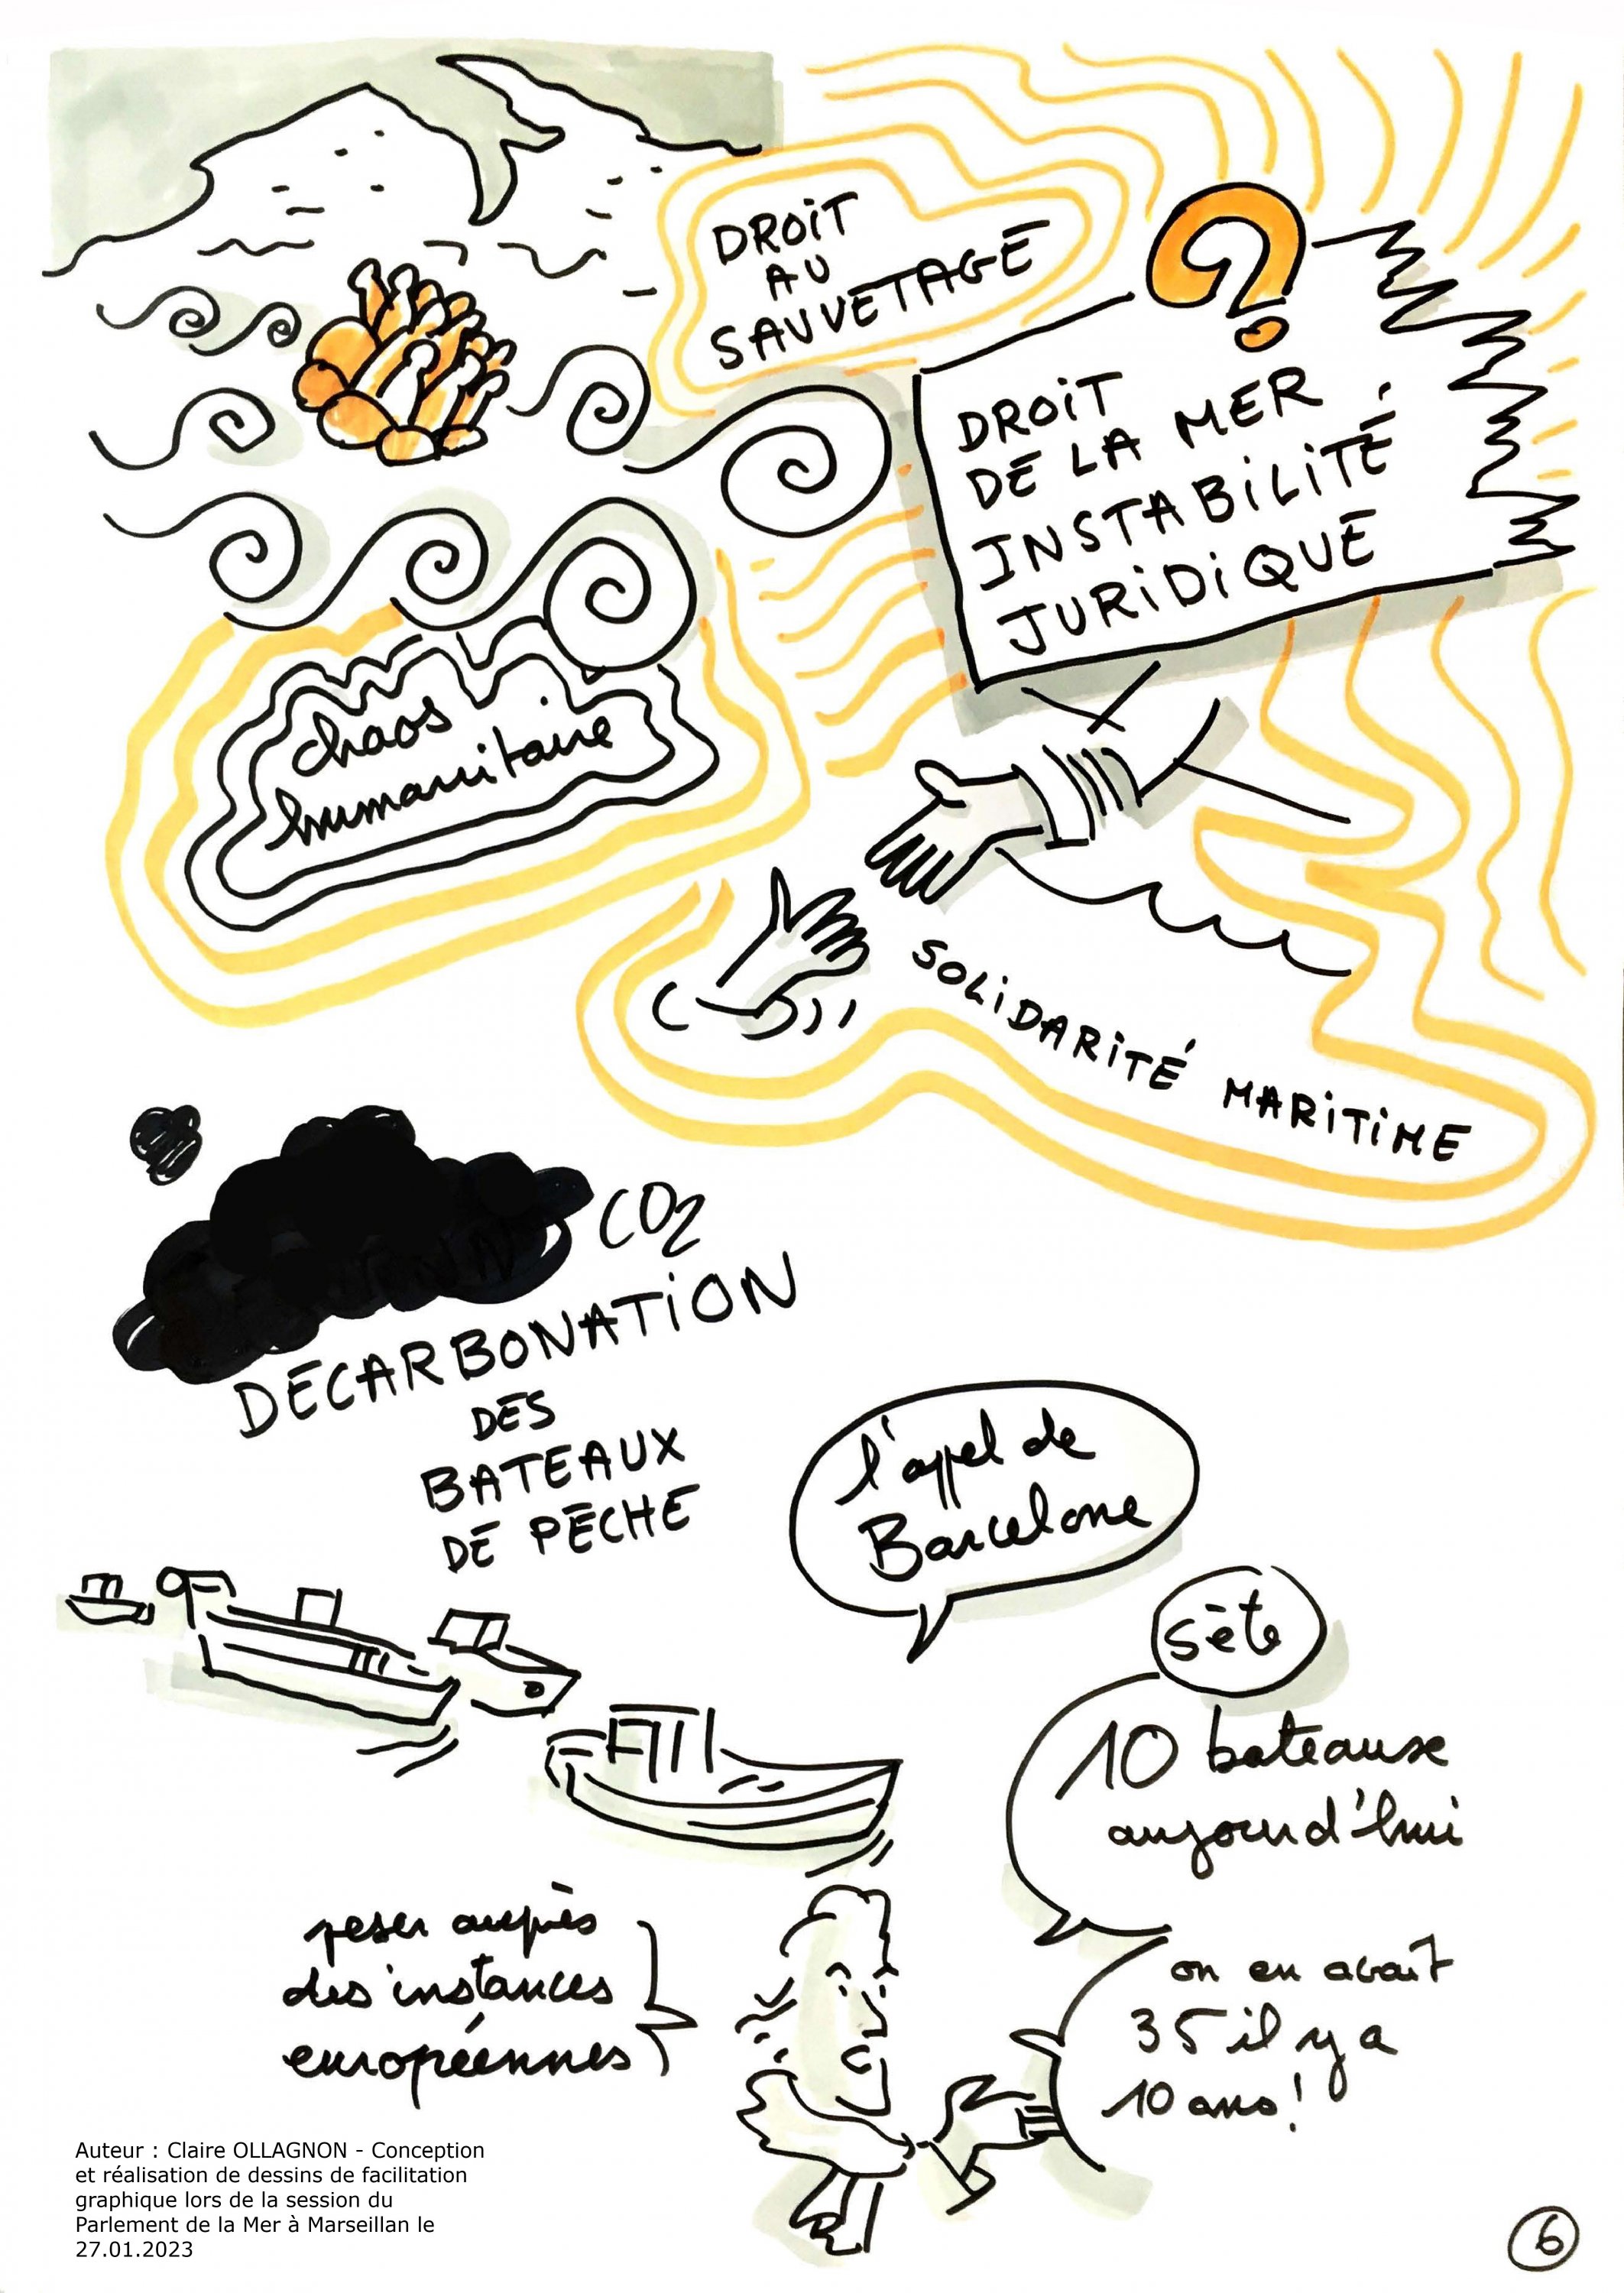 DROIT
AU
SAUVETAGE
?
DROIT
DE LA MER
INSTABILITÉ
JURIDIQUE
chaos
humanitaire
SOLIDARITÉ MARITIME
CO2
DECARBONATION
DES
BATEAUX
DE PECHE
l'appel de
Barcelone
Sète
10 bateaux
aujourd'hui
on en avait
35 il y a
10 ans!
peser auprès
des instances
européennes
Auteur : Claire OLLAGNON - Conception
et réalisation de dessins de facilitation
graphique lors de la session du
Parlement de la Mer à Marseillan le
27.01.2023
6